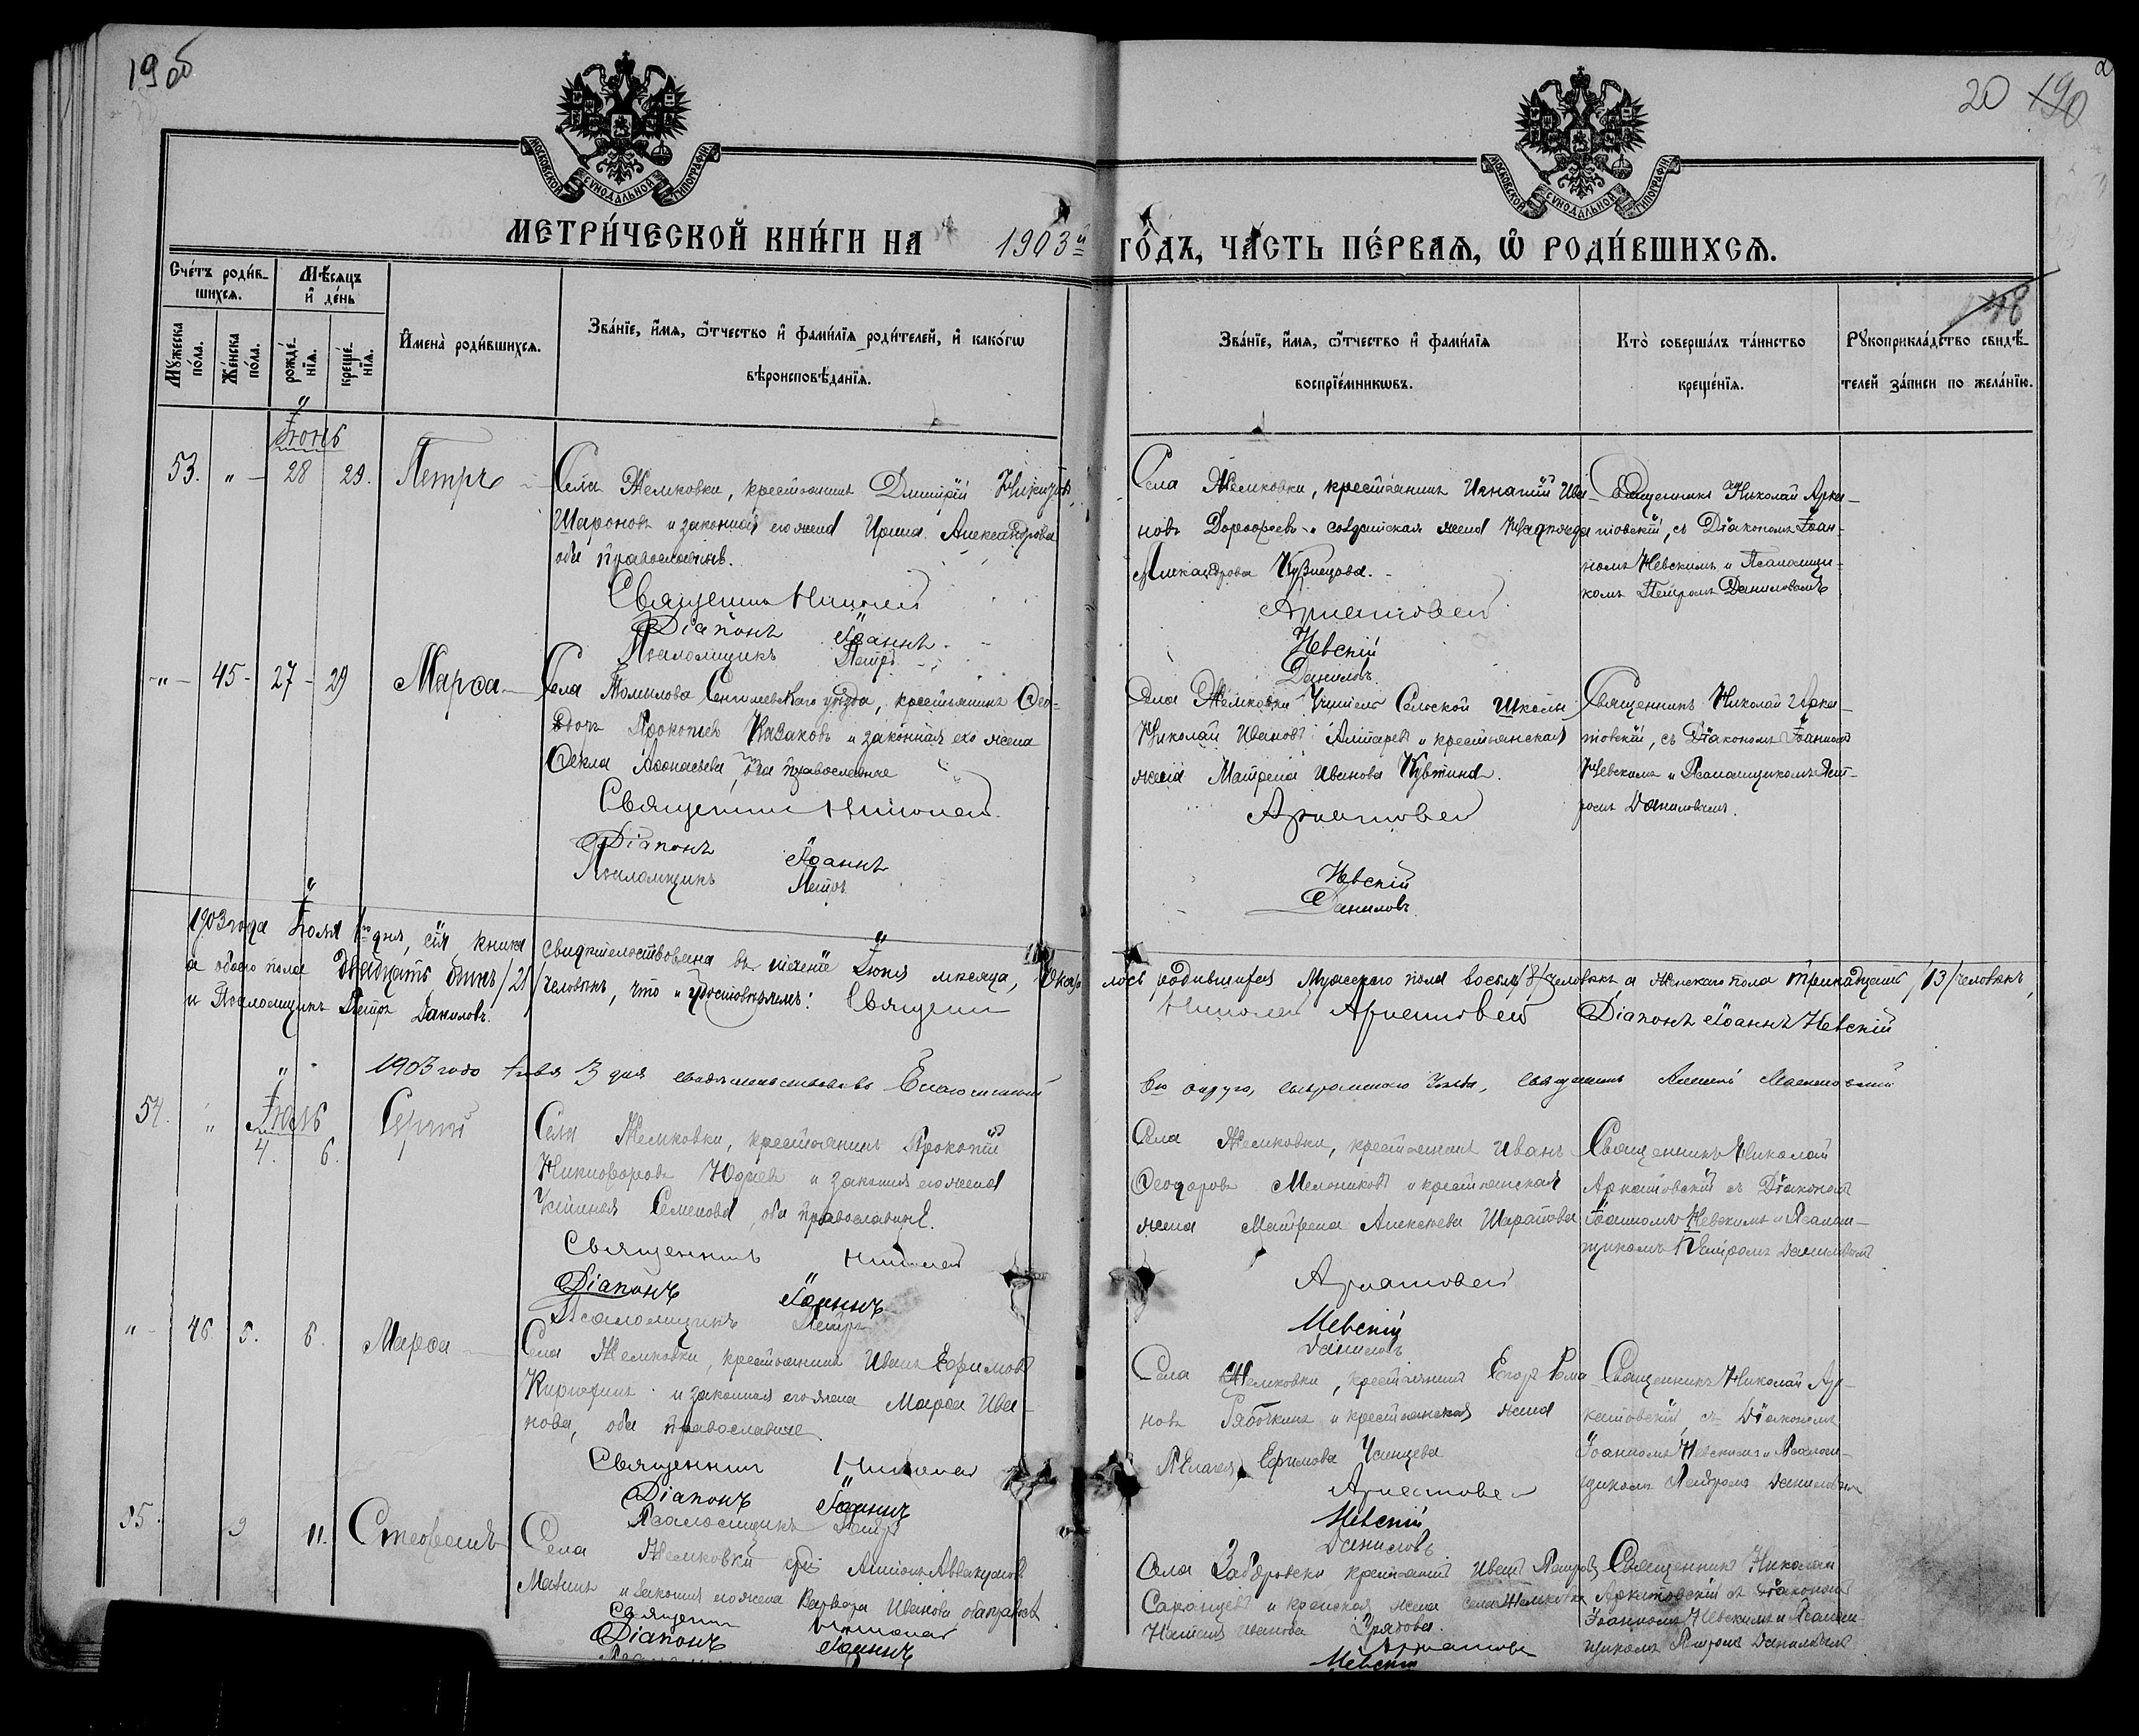 19 об
20 190
МОСКОВСКОЙ СѴНОДАЛЬНОЙ ТИПОГРАФІИ
МОСКОВСКОЙ СѴНОДАЛЬНОЙ ТИПОГРАФІИ
МЕТРИ́ЧЕСКОЙ КНИ́ГИ НА 1903й ГО́ДЪ, ЧА́СТЬ ПЕ́РВАѦ, Ѡ҆ РОДИ́ВШИХСѦ.
Сче́тъ роди́в-
шихсѧ.
Мѣ́сѧцъ
и҆ де́нь
Мꙋ́жеска по́ла.
Же́нска по́ла.
рожде́-
нїѧ.
креще́-
нїѧ.
И҆мена̀ роди́вшихсѧ.
Зва́нїе, и҆́мѧ, ѻ҆́тчество и҆ фами́лїѧ роди́телей, и҆ како́гѡ
вѣроисповѣ́данїѧ.
Зва́нїе, и҆́мѧ, ѻ҆́тчество и҆ фами́лїѧ
воспрїе́мникѡвъ.
Кто̀ соверша́лъ та́инство
креще́нїѧ.
Рꙋкоприкла́дство свидѣ́-
телей за́писи по жела́нїю.
Іюнь
53. " 28 29. Петръ
Села Жемковки, крестьянинъ Димитрій Никитинъ
Шароновъ и законная его жена Ирина Александрова
оба православные.
Священникъ Николай
Діаконъ Іоаннъ
Псаломщикъ Петръ
Села Жемковки, крестьянинъ Игнатій Ива-
новъ Дорофеевъ и солдатская жена
Александрова Кузнецова.
Аркатовскій
Невскій
Даниловъ.
Священникъ Николай Арка-
товскій, съ Діакономъ Іоан-
номъ Невскимъ и Псаломщи-
комъ Петромъ Даниловымъ
" 45 27 29 Марѳа
Села Томилова Сенгилеевскаго уѣзда, крестьянинъ Ѳео-
доръ Прокопіев Казаковъ и законная его жена
Ѳекла Аѳонасьева, оба православные
Священникъ Николай
Діаконъ Іоаннъ
Псаломщикъ Петръ
Села Жемковки Учитель Сельской Школы
Николай Ивановъ Алтаревъ и крестьянская
жена Матрена Иванова
Аркатовскій
Невскій
Даниловъ
Священникъ Николай Арка-
товскій, съ Діакономъ Іоанномъ
Невскимъ и Псаломщикомъ Пет-
ромъ Даниловымъ.
1903 года Іюля 1го дня, сія книга свидѣтельствована въ теченіе Іюня мѣсяца, оказалось родившихся Мужескаго пола восемь /8/ человѣкъ, а женскаго пола тринадцать /13/ человѣкъ,
а обоего пола двадцать одинъ /21/ человѣкъ, что и удостовѣряемъ: Священникъ Николай Аркатовскій Діаконъ Іоаннъ Невскій
и Псаломщикъ Петръ Даниловъ.
1903 года Іюля 3 дня свидѣтельствовалъ Благочинный
округа, Сызранскаго уѣзда, священникъ Алексій
Іюль
54. " 4. 6. Сергій
Села Жемковки, крестьянинъ Прокопій
Никифоровъ Юдаевъ и законная его жена
Устинья Семенова, оба православные.
Священникъ Николай
Діаконъ Іоаннъ
Псаломщикъ Петръ
Села Жемковки, крестьянинъ Иванъ
Ѳеодоровъ Мельниковъ и крестьянская
жена Матрена Алексѣева
Аркатовскій
Невскій
Даниловъ
Священникъ Николай
Аркатовскій съ Діакономъ
Іоанномъ Невскимъ и Псалом-
щикомъ Петромъ Даниловымъ
" 46 5. 6. Марѳа
Села Жемковки, крестьянинъ Иванъ Ефимовъ
и законная его жена Марѳа Ива-
нова, оба православные
Священникъ Николай
Діаконъ Іоаннъ
Псаломщикъ Петръ
Села Жемковки, крестьянинъ Егоръ Рома-
новъ Рябочкинъ и крестьянская жена
Пелагея Ефимова
Аркатовскій
Невскій
Даниловъ
Священникъ Николай Ар-
катовскій, съ Діакономъ
Іоанномъ Невскимъ и Псалом-
щикомъ Петромъ Даниловымъ
55. 9 11. Стефанъ
Села Жемковки Аввакумовъ
и законная его жена Варвара Иванова оба правосл
Священникъ Николай
Діаконъ Іоаннъ
Села Заборовки крестьянинъ Иванъ Петровъ
Саранцевъ и крестьянская жена села Жемковки
Иванова
Аркатовскій
Невскій
Священникъ Николай
Аркатовскій съ Діакономъ
Іоанномъ Невскимъ и Псалом-
щикомъ Петромъ Даниловымъ